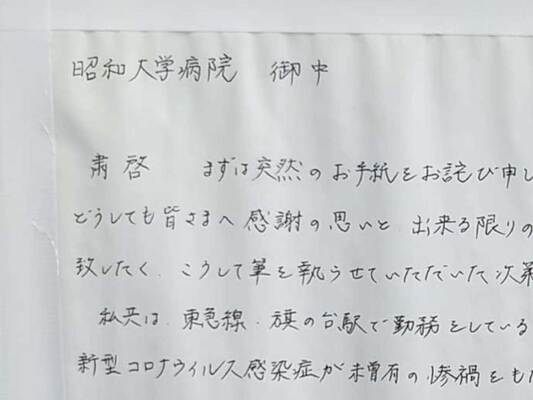 昭和大学病院 御中
粛啓 まずは突然のお手紙をお詫び申し
どうしても皆さまへ感謝の思いと、出来る限りの
致したく、こうして筆を執らせていただいた次第
私共は、東急線・旗の台駅で勤務をしている
新型コロナウィルス感染症が未曽有の惨禍をもた